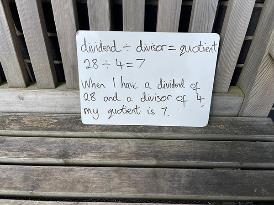 dividend ÷ divisor = quotient
28 ÷ 4 = 7
When I have a dividend of
28 and a divisor of 4,
my quotient is 7.